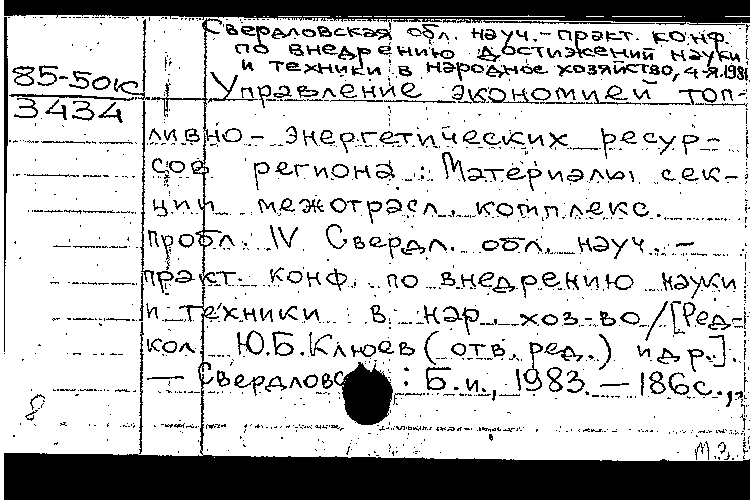 Свердловская обл. науч.-практ. конф.
по внедрению достижений науки
и техники в народное хозяйство, 4-я. 1981
85-50к
3434
Управление экономией топ-
ливно-энергетических ресур-
сов региона: Материалы сек-
ции межотрасл. комплекс.
пробл. IV Свердл. обл. науч.-
практ. конф. по внедрению науки
и техники в нар. хоз-во/[Ред-
кол. Ю.Б.Клюев (отв. ред.) и др.].
— Свердловск : Б.и., 1983. — 186с.,
8
М.З.